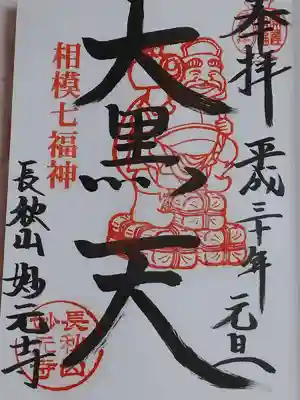 奉拝
平成三十年 元旦
大黒天
相模七福神
長秋山 妙元寺
長秋山
妙元寺